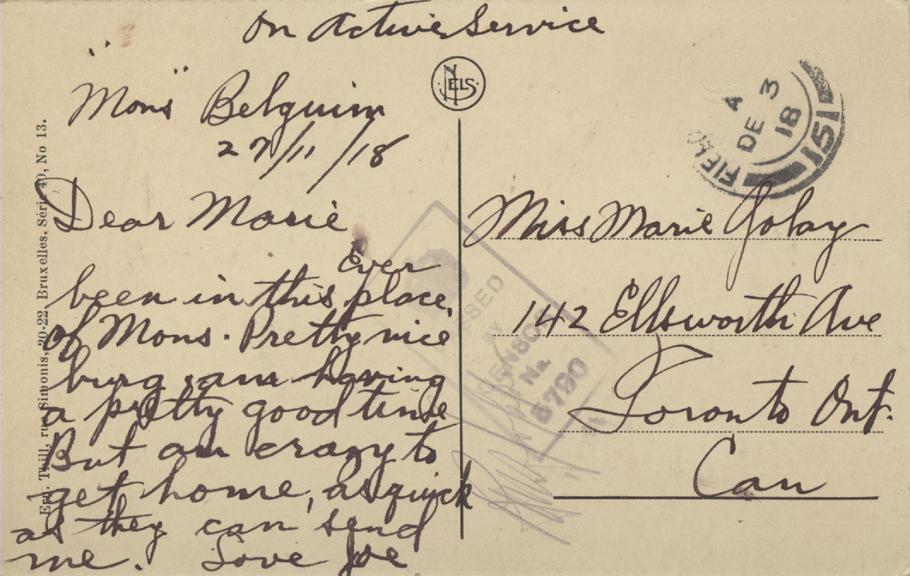 On Active Service
"Mons" Belguim
27/11/18
Dear Marie
Ever
been in this place
of Mons. Pretty nice
burg, am having
a pretty good time
But am crazy to
get home, as quick
as they can send
me. Love Joe
NELS
FIELD
A
DE 3
18
151
PASSED
BY
CENSOR
No.
5790
Miss Marie Golay
142 Ellsworth Ave
Toronto Ont.
Can
Ern. Thill, rue Simonis, 20-22, Bruxelles. Série 40, No 13.